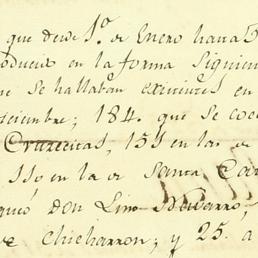 que desde 1º de Enero hasta 3
oducido en la forma siguien
e se hallaban existentes en
iciembre; 184. que se coc
Cruzecitas, 151 en las de
110 en la de Santa Ca
Don Lino Navarro,
Chicharron; y 25. a